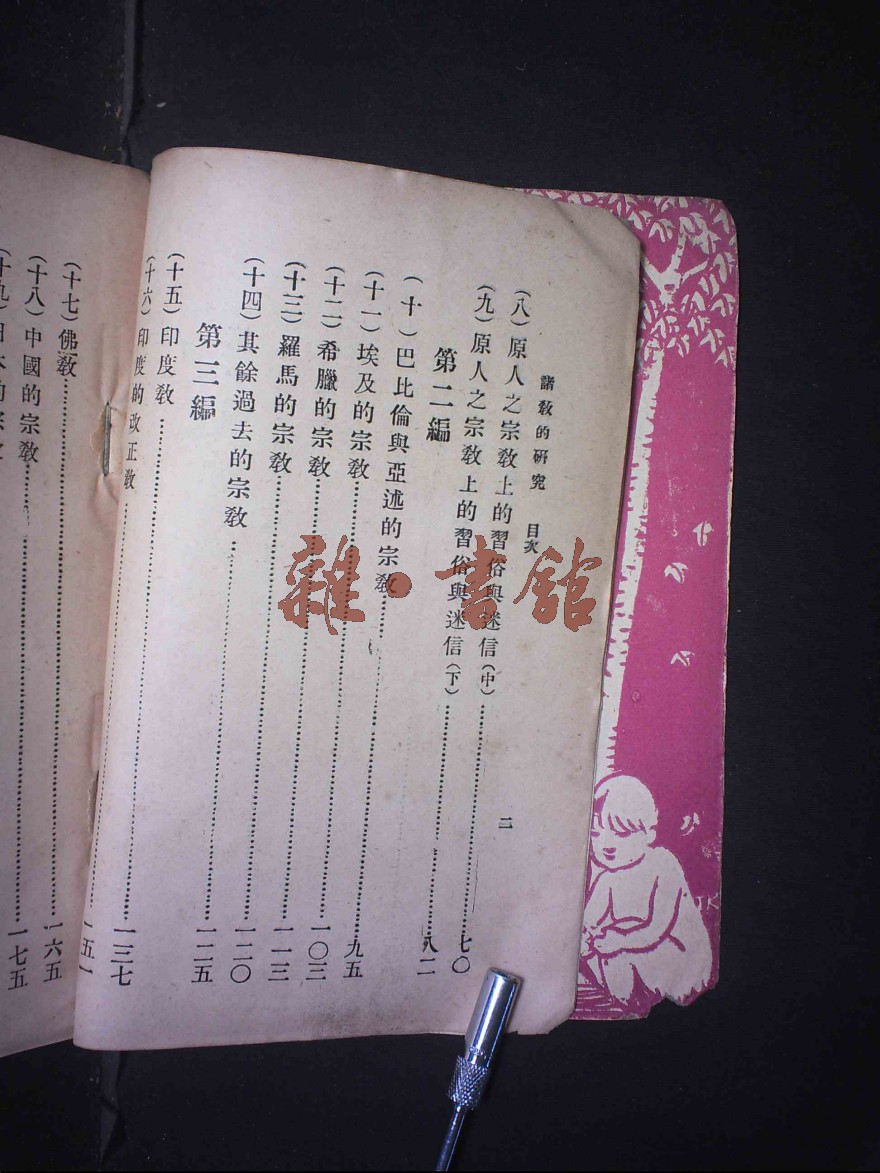 諸教的研究 目次 二
(八)原人之宗教上的習俗與迷信(中)……七〇
(九)原人之宗教上的習俗與迷信(下)……八二
第二編
(十)巴比倫與亞述的宗教……九五
(十一)埃及的宗教……一〇三
(十二)希臘的宗教……一一三
(十三)羅馬的宗教……一二〇
(十四)其餘過去的宗教……一二五
第三編
(十五)印度教……一三七
(十六)印度的改正教……一五一
(十七)佛教……一六五
(十八)中國的宗教……一七五
雜·書館